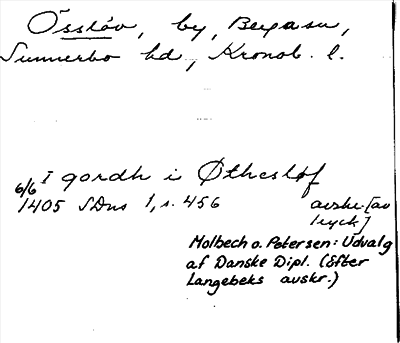 Össlöv, by, Berga sn,
Sunnerbo hd, Kronob. l.
I gordh i Øtheslöf
6/6 1405 SDns 1, s. 456 avskr. [av
tryck]
Molbech o. Petersen: Udvalg
af Danske Dipl. (Efter
Langebeks avskr.)